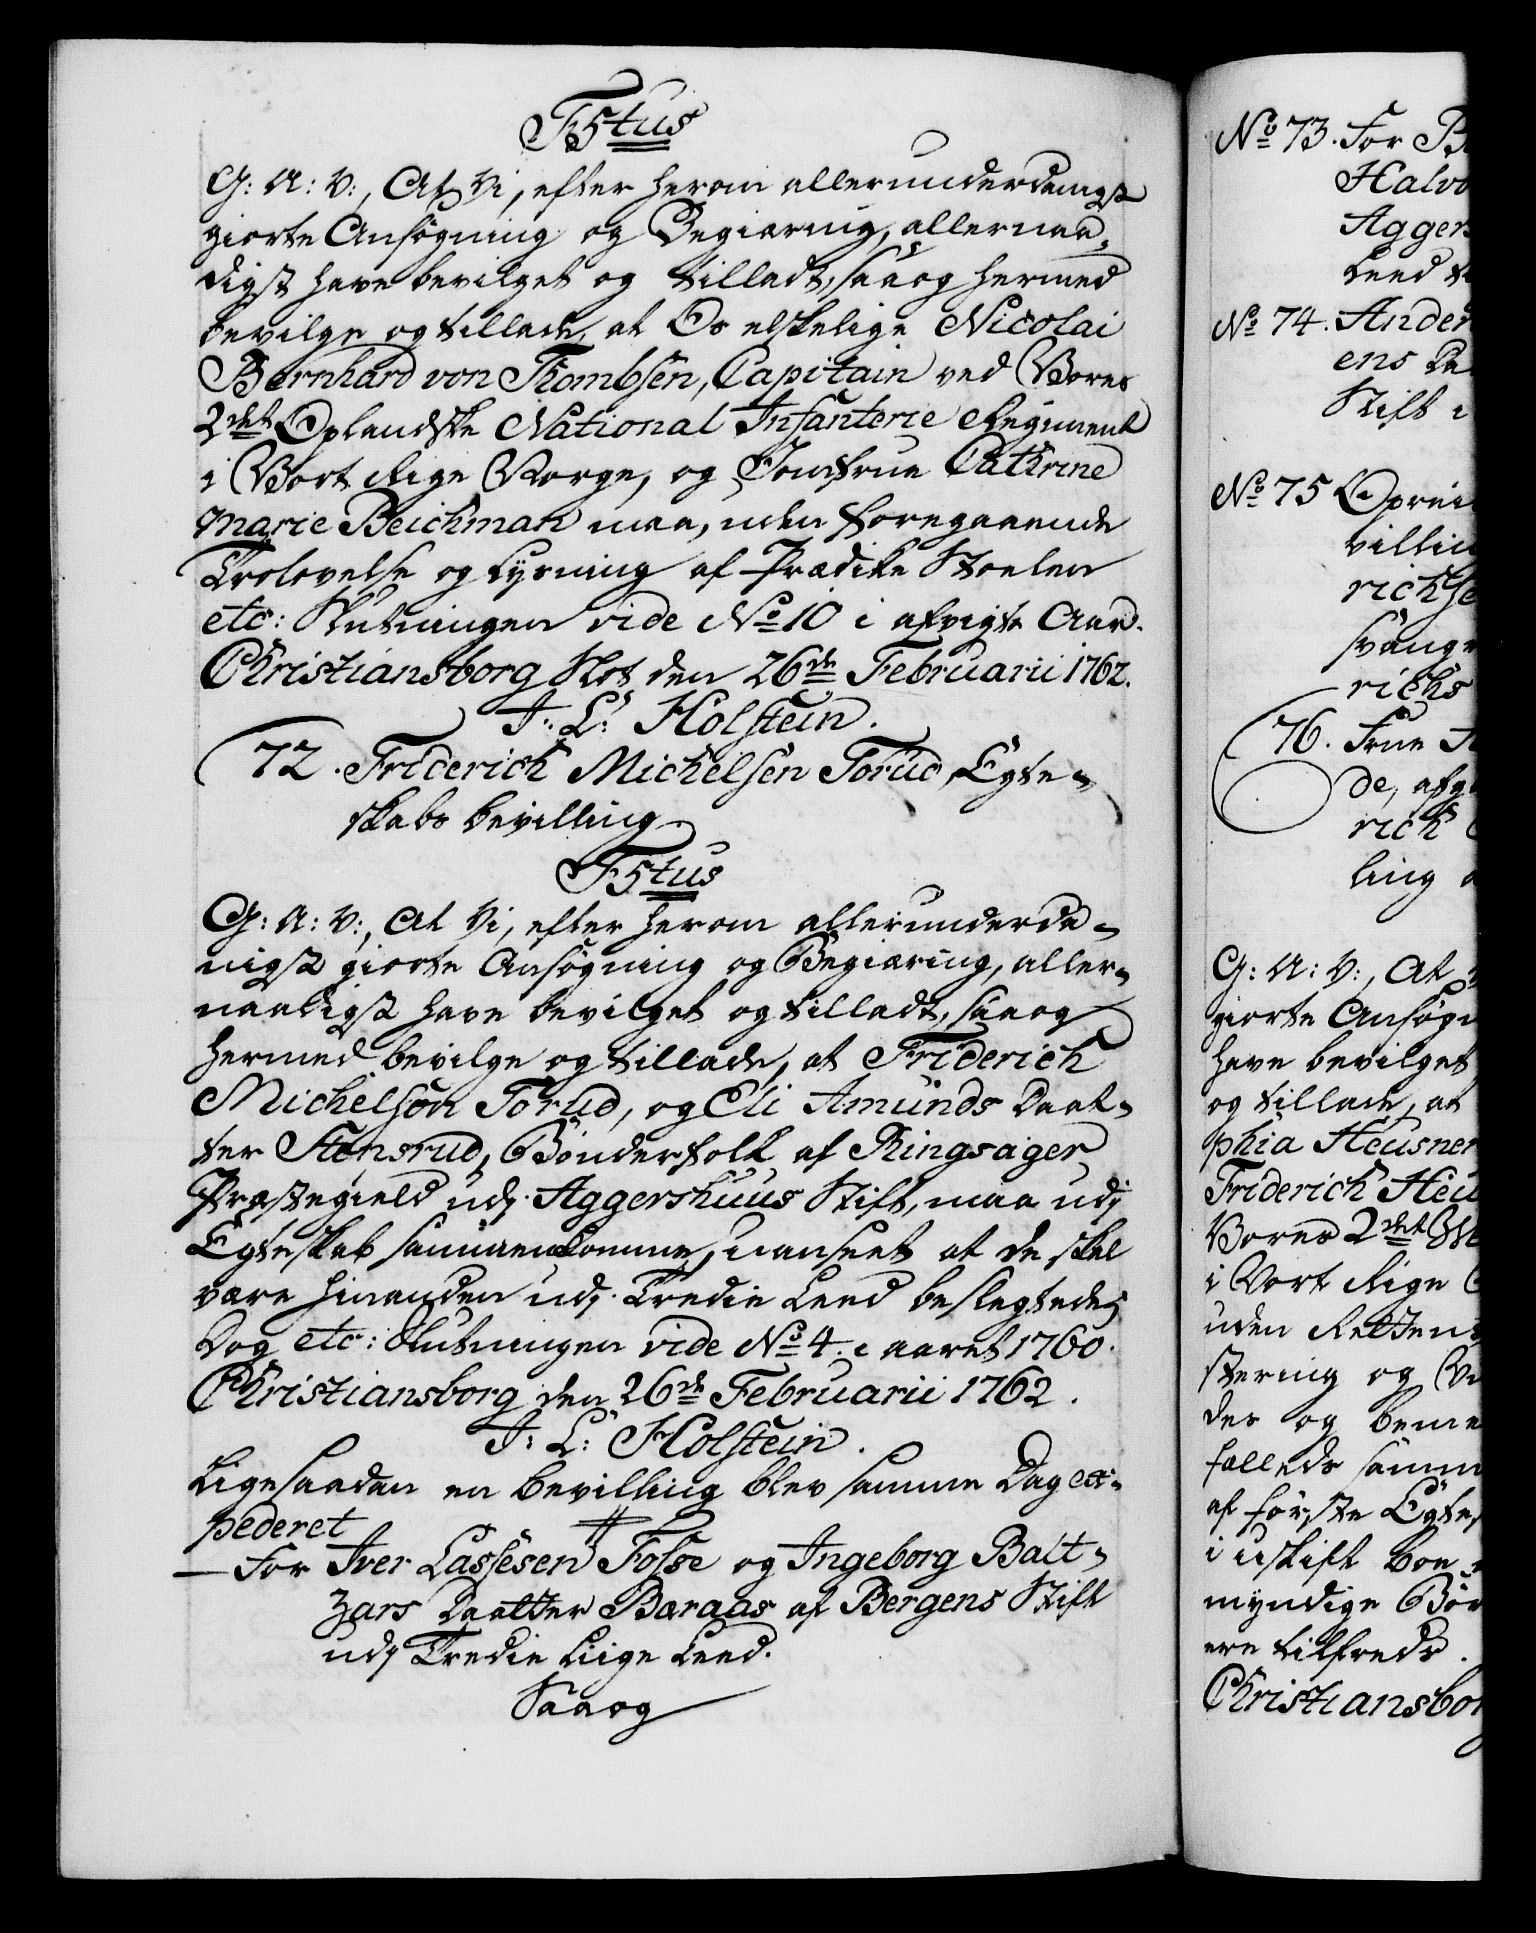 F5tus
G: A: V:, At Vi, efter herom allerunderdanigst
giorte Ansøgning og Begiæring, allernaa-
digst have bevilget og tilladt, saa og hermed
bevilge og tillade, at Os elskelige Nicolai
Bernhard von Thombsen, Capitain ved Vores
2det Oplandske National Infanterie Regiment
i Vort Rige Norge, og Jomfrue Cathrine
Marie Beichman maa, uden foregaaende
Trolovelse og Lysning af Prædike Stoelen
etc: Slutningen vide No 10 i afvigte Aar.
Christiansborg Slot den 26de Februarii 1762.
J: L: Holstein.
72. Friderich Michelsen Torud, Egte-
skabs bevilling
F5tus
G: A: V:, At Vi, efter herom allerunderda-
nigst giorte Ansøgning og Begiæring, aller-
naadigst have bevilget og tilladt, saa og
hermed bevilge og tillade, at Friderich
Michelsøn Torud, og Eli Amunds Daat-
ter Stensrud, Bønderfolk af Ringsager
Præstegield udj Aggershuus Stift, maa udj
Egteskab sammenkomme, uanseet at de skal
være hinanden udj Tredie Leed beslegtede,
Dog etc: Slutningen vide No 4. i aaret 1760.
Christiansborg den 26de Februarii 1762.
J: L: Holstein.
Ligesaadan en bevilling blev samme Dag ex-
pederet
For Iver Lassesen Fosse og Ingeborg Balt-
zars Daatter Baraas af Bergens Stift
udj Tredie Liige Leed.
Saa og
No 73. For
Halvo
Agger
Leed
No 74. Ander
ens
Stift i
No 75
villing
richse
svang
richs
76. Frue
de, afg
rich
ling
G: A: V:, At
giorte Ansøg
have bevilget
og tillade, at
phia Heusner
Friderich Heu
Vores 2det
i Vort Rige
uden Rettens
stering og
des og beme
fælleds samm
af første Egte
i uskift boe
myndige Bør
ere tilfreds.
Christiansborg